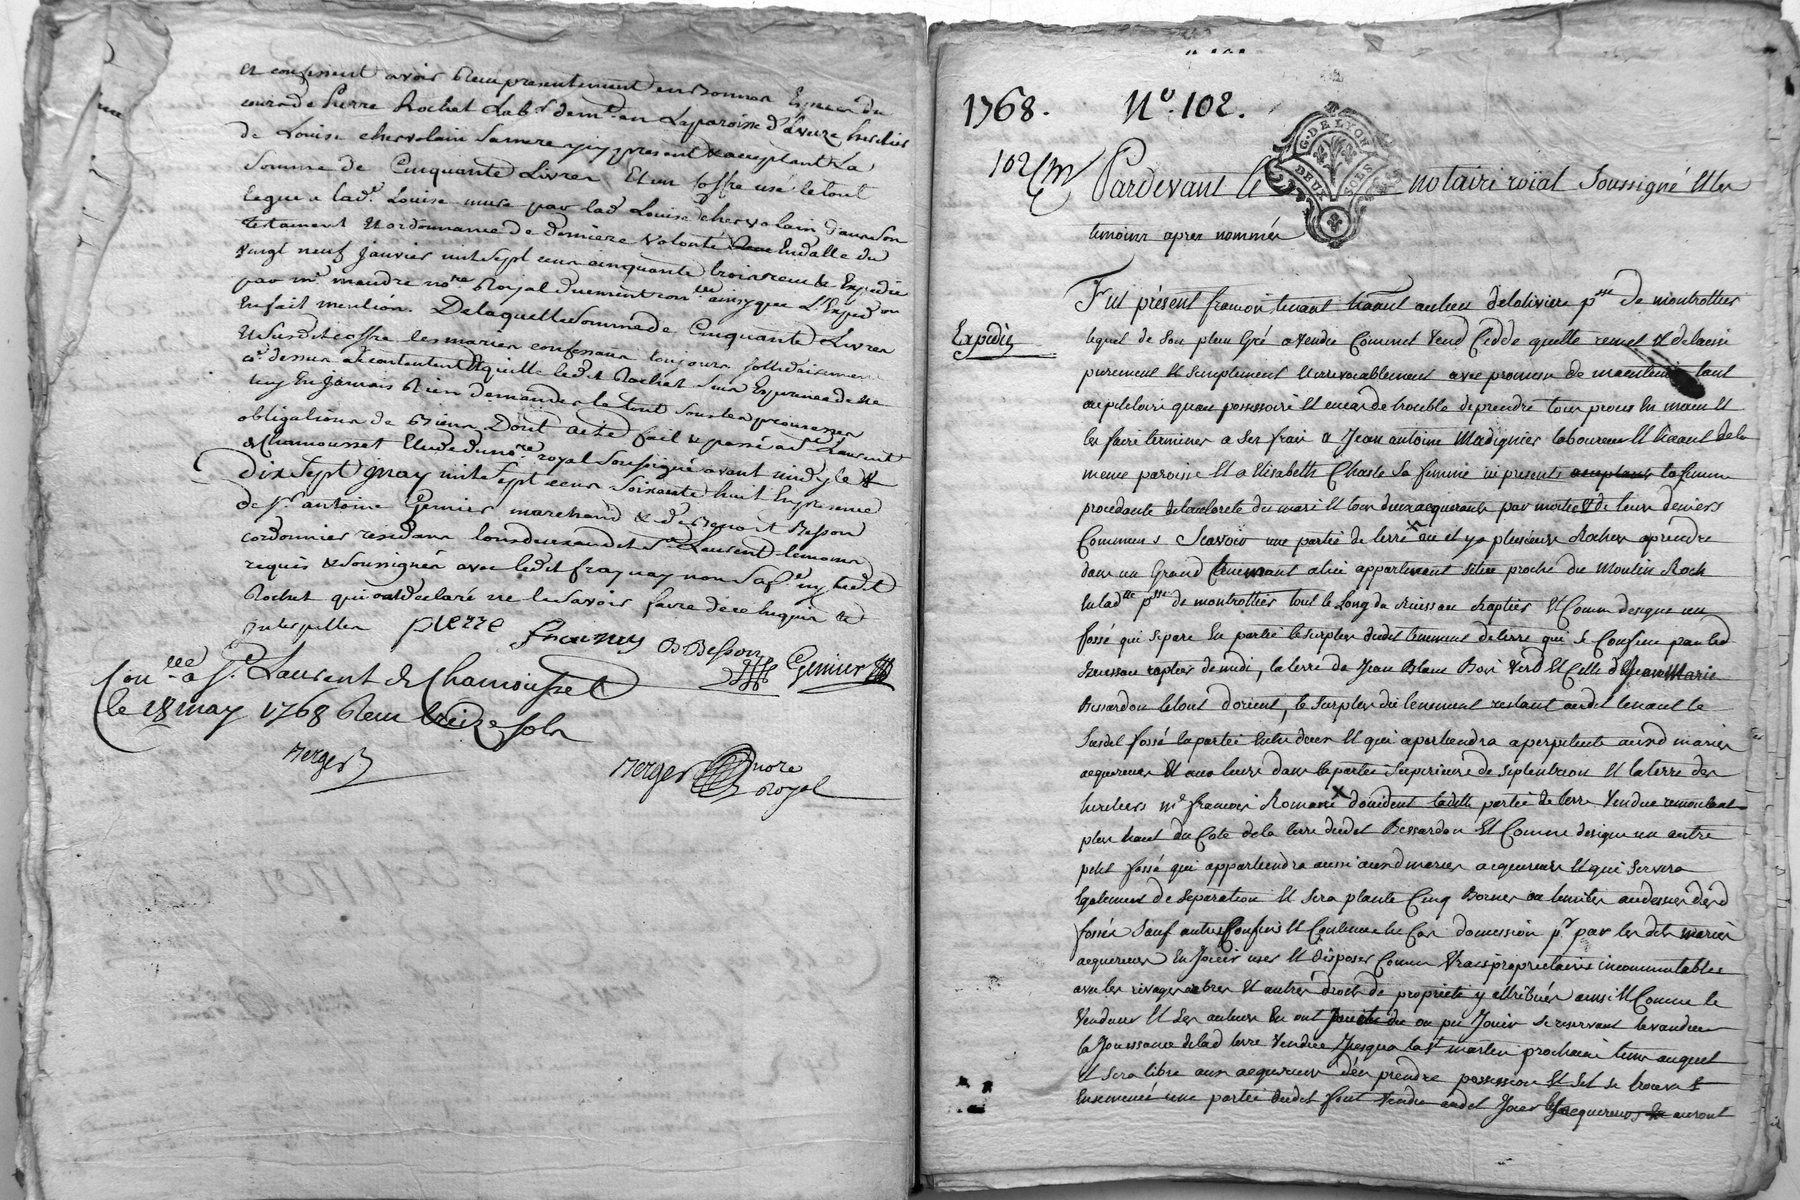 et confessent avoir Reçu presentement en bonnes Especes du
de Pierre Rochet Lab.r dem.t en La paroisse d'aveize heritier
de Louise chervolain sa mere ycy present & acceptant La
somme de Cinquante Livres Et un coffre usé le tout
legué a lad.e Louise mure par lad Louise chervolain dans son
testament Et ordonnance de derniere volonté En datte du
vingt neuf Janvier mil sept cens cinquante trois recu & Expedié
par m.e no.re Royal duement con.lé ainsy que L'Exped.on
En fait mention. De laquelle somme de Cinquante Livres
Et susdit coffre les mariés confessans toujours sollidairement
cy dessus se contentent Et quitte ledit Rochet sous Expromesse de ne
luy En jamais Rien demander le tout sous les promesses
obligations de biens Dont acte fait & passé a S.t Laurent
de Chamousset Etude du no.re royal soussigné avant midy le
Dix Sept may mil sept cens soixante huit En presence
de S.r antoine Genier marchand & de Benoit Besson
cordonnier residans tous deux audit S.t Laurent temoins
requis & soussignés avec ledit fragnay non sa f.e ny ledit
Rochet qui ont declaré ne le savoir faire de ce Enquis &
Interpellés PIERRE B Besson Genier
Con.lé a S.t Laurent de Chamousset
le 18 may 1768 Reçu treize sols
Verger
Verger nore
Royal
1768. N.o 102.
G. DE LYON
DEUX SOLS
102 Pardevant le notaire roïal Soussigné Et les
temoins apres nommés
Fut présent françois au lieu de la riviere p.sse de montrottier
Expedié
lequel de son plein Gré a vendu Comme il vend Cedde quitte remet Et delaisse
purement Et simplement Et irrevocablement avec promesse de maintenir tant
au petitoire quau possessoire Et en cas de trouble de prendre tous proces En main Et
les faire terminer a ses frais a Jean antoine Madignier laboureur Et de la
meme paroisse Et a Elisabeth Charle sa femme ici presents acceptants la femme
procedante de lautorité du mari Et tous deux acquerants par moitié Et de leurs deniers
Communs Scavoir une partie de terre ou il y a plusieurs Rochers a prendre
dans un Grand tenement a lui appartenant situé proche du Moulin Roch
En lad.te p.sse de montrottier tout le long du Ruisseau Raptier Et Comme designe un
fossé qui separe En partie le surplus dudit tenement de terre qui se Confine par led
Ruisseau raptier de midi, la terre de Jean Blanc Bois Verd Et Celle d Jean Marie
Bissardon le tout d'orient, le surplus du tenement restant audit tenant le
Susdit fossé la partie Entre deux Et qui apartiendra a perpetuité auxd mariés
acquereurs Et aux leurs dans la partie Superieure de septentrion Et la terre des
heritiers m.e françois Romani d'occident ladite partie de terre Vendue remontant
plus haut du Coté de la terre dudit Bissardon Et Comme designe un autre
petit fossé qui appartiendra aussi auxd mariés acquereurs Et qui servira
Egalement de separation Et sera planté Cinq Bornes ou limites au dessus desd
fossés Sauf autres Confins Et Contenu En Cas domission p.r par les dits mariés
acquereurs En Jouir user Et disposer Comme Vrais proprietaires incommutables
avec les rivages arbres Et autres droits de proprieté y attribués ainsi Et Comme le
Vendeur Et ses auteurs En ont ou pu Jouir se reservant le vendeur
la Jouissance de lad terre Vendue Jusqua la S.t martin prochain tems auquel
il sera libre aux acquereurs den prendre possession Et sil se trouve
Ensemencé une partie dudit fond Vendu audit Jour les acquereurs auront